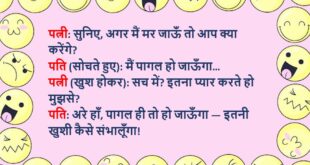 पत्नी: सुनिए, अगर मैं मर जाऊँ तो आप क्या
करेंगे?
पति (सोचते हुए): मैं पागल हो जाऊँगा...
पत्नी (खुश होकर): सच में? इतना प्यार करते हो
मुझसे?
पति: अरे हाँ, पागल ही तो हो जाऊँगा — इतनी
खुशी कैसे संभालूँगा!